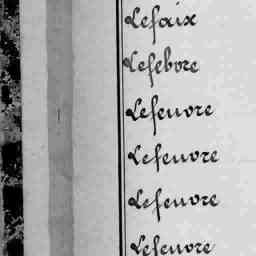 Lefaix
Lefebvre
Lefeuvre
Lefeuvre
Lefeuvre
Lefeuvre